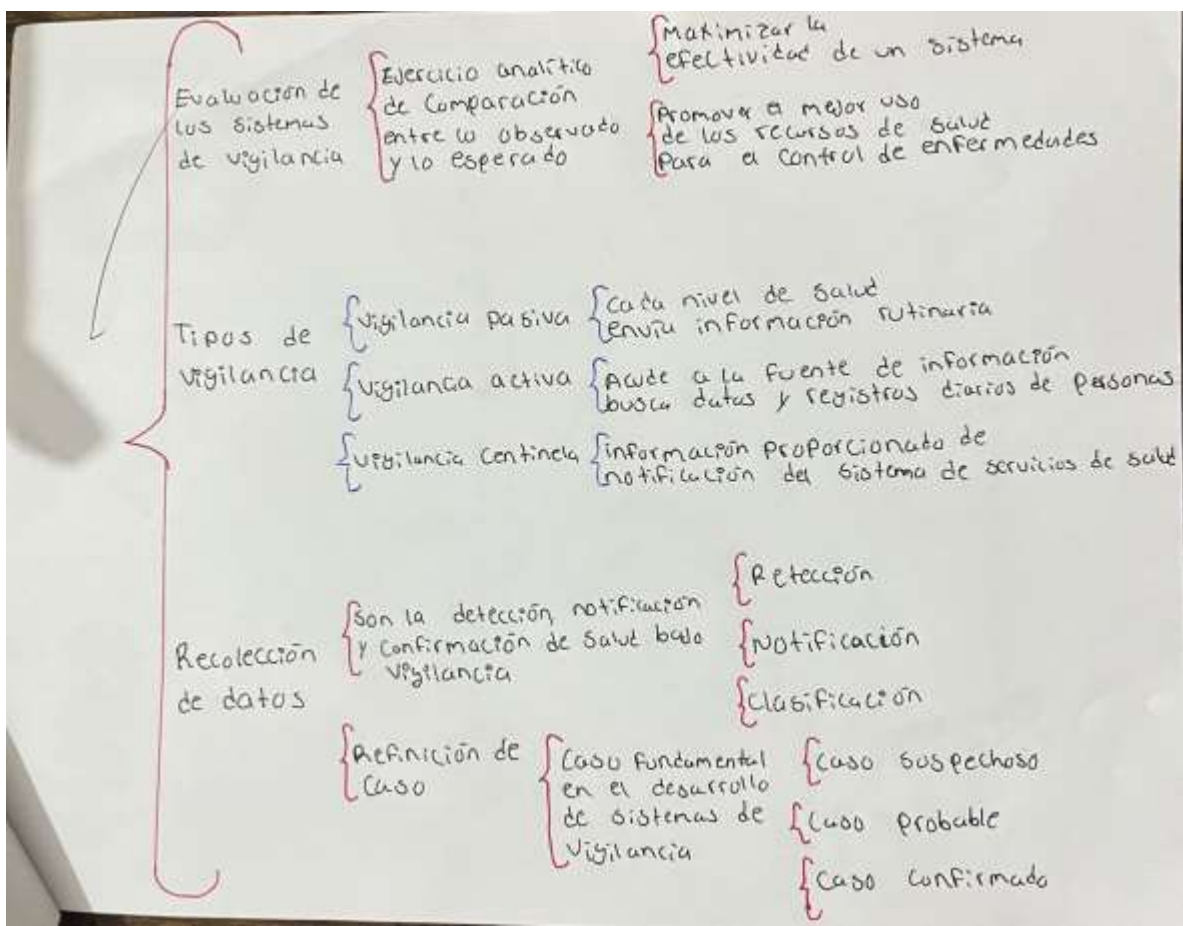 Evaluación de
los sistemas
de vigilancia
Ejercicio analítico
de Comparación
entre lo observado
y lo esperado
Maximizar la
efectividad de un sistema
Promover el mejor uso
de los recursos de salud
Para el control de enfermedades
Tipos de
vigilancia
vigilancia pasiva
Cada nivel de salud
envia información rutinaria
vigilanca activa
Acude a la fuente de información
busca datos y registros diarios de personas
vigilancia centinela
información proporcionado de
notificación del sistema de servicios de salud
Recolección
de datos
Son la detección, notificación
y confirmación de salud bajo
vigilancia
Retección
Notificación
Clasificación
Refinición de
Caso
Caso fundamental
en el desarrollo
de sistemas de
vigilancia
Caso sospechoso
Caso probable
Caso confirmado